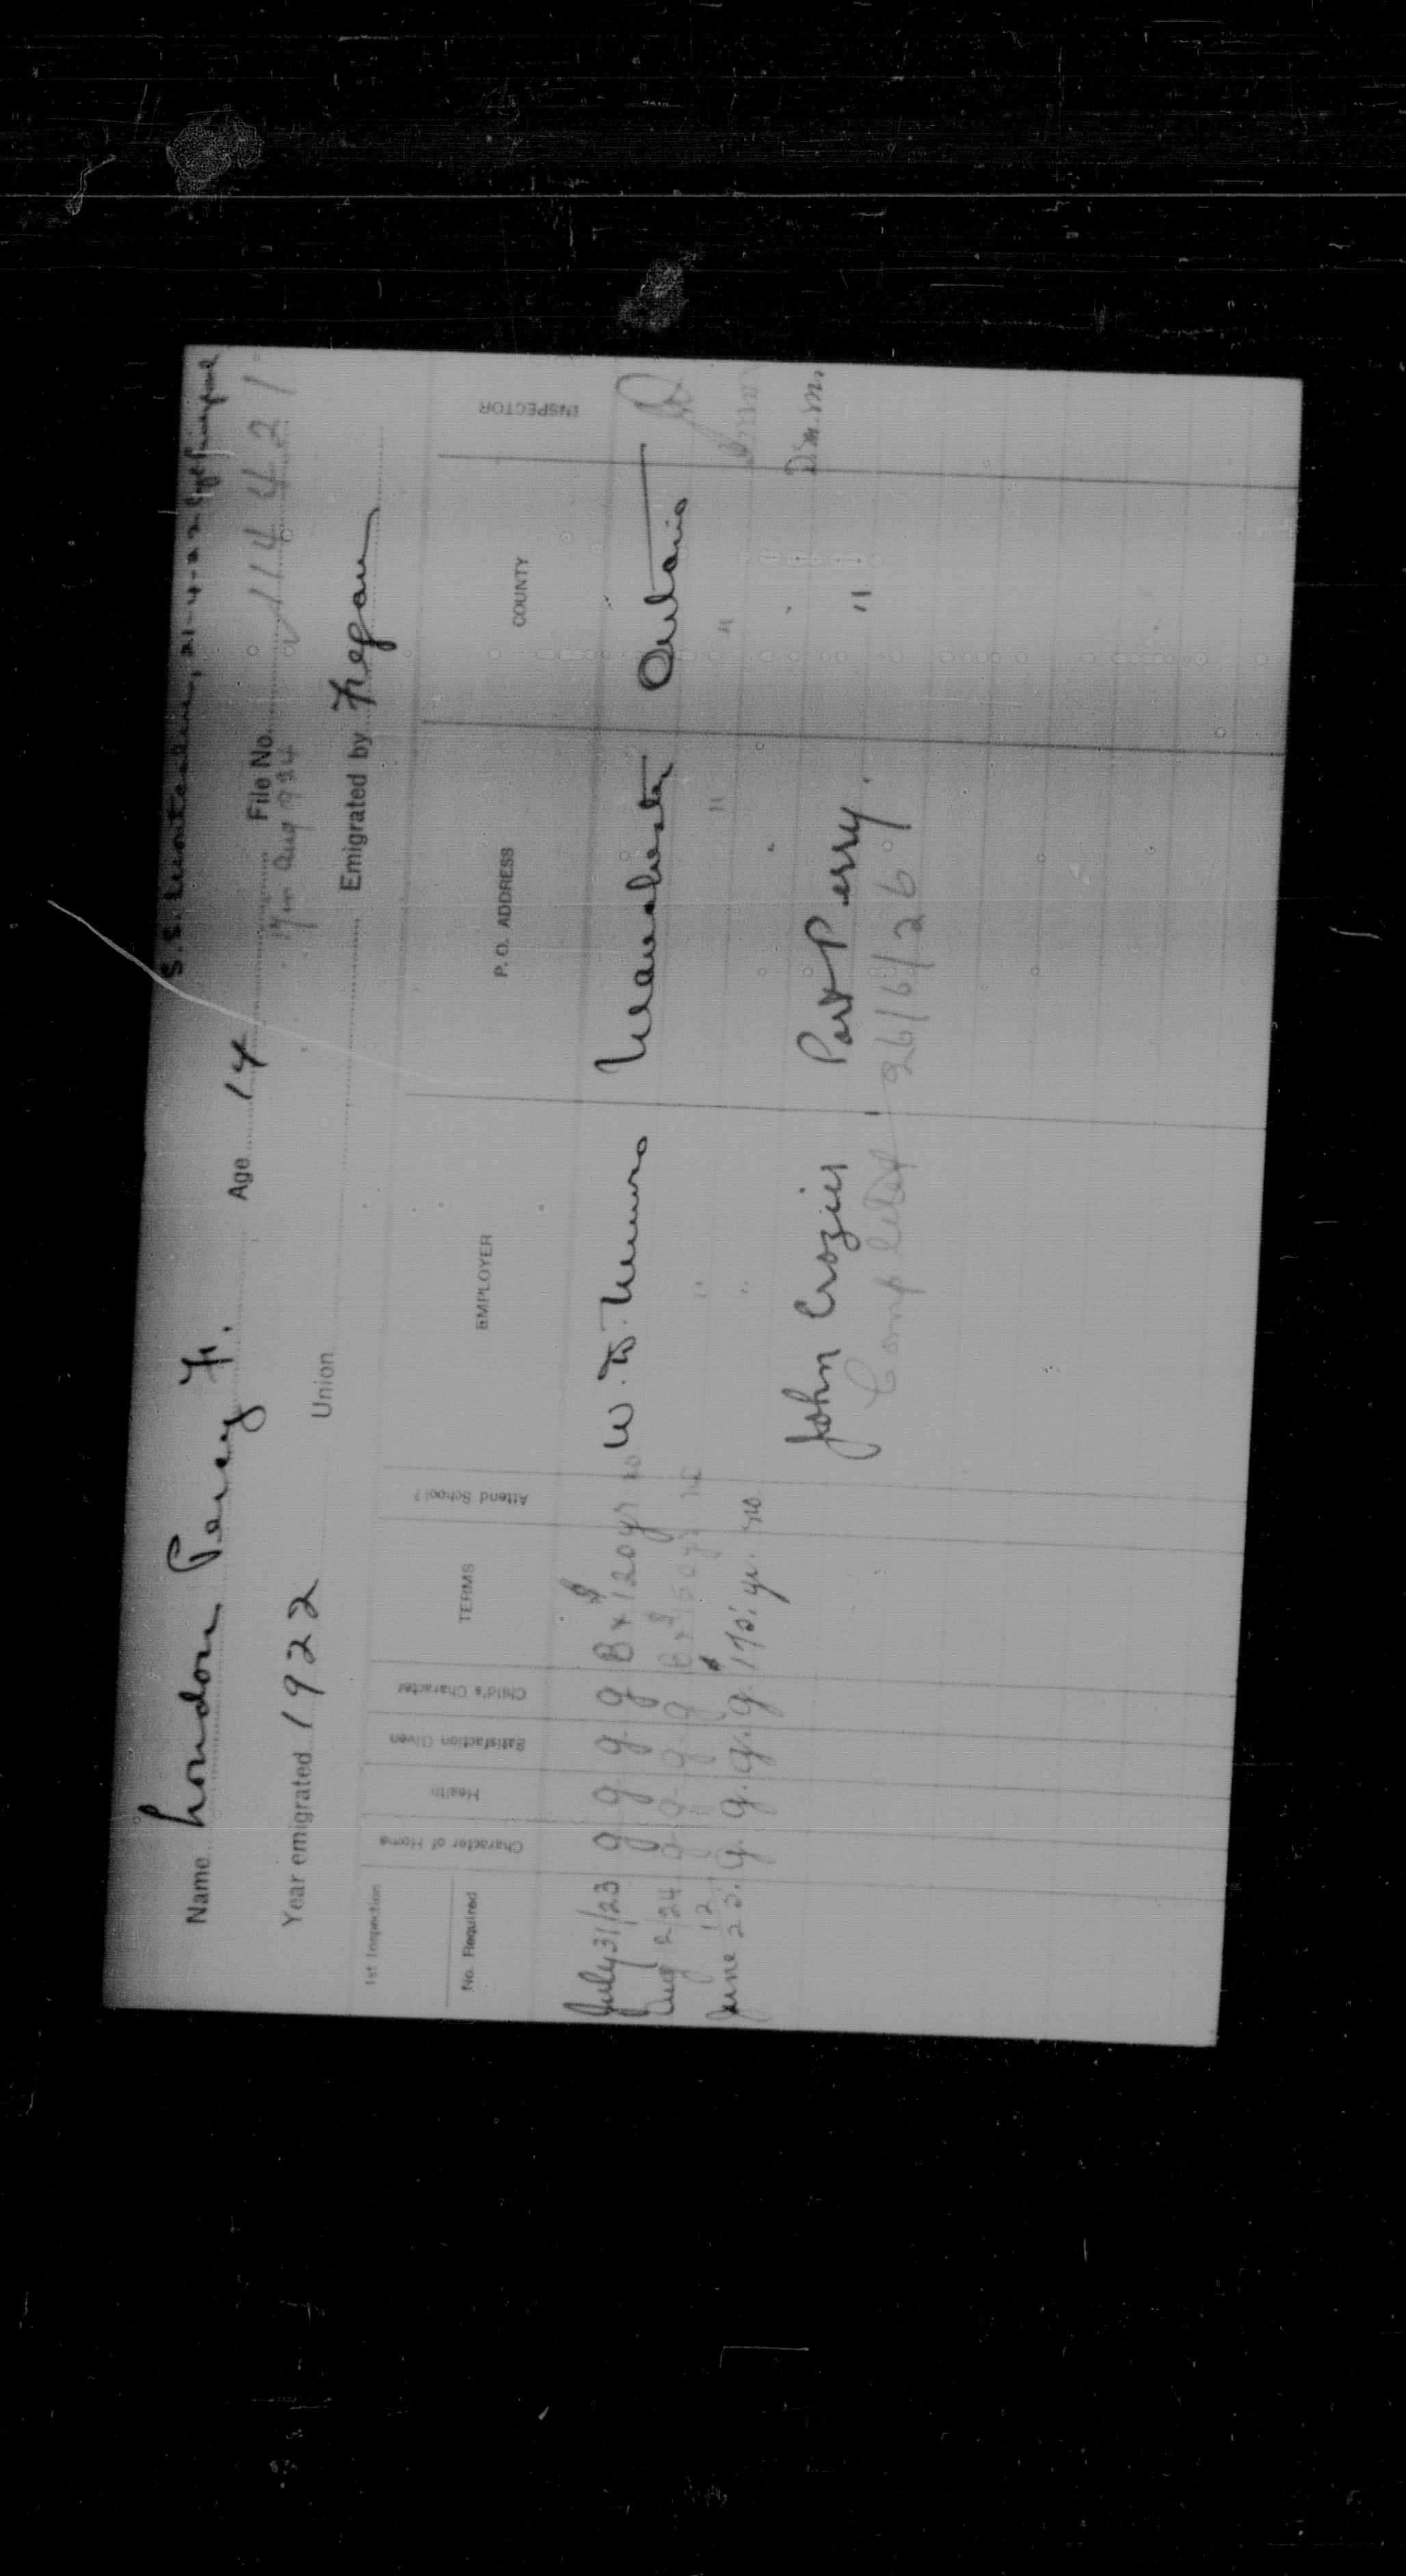 S.S. Montcalm, 21-4-22 Liverpool
Name London Percy F. Age 14 File No. 114421
Aug 994
Year emigrated 1922 Union Emigrated by Fegan
1st Inspection
No. Required Character of Home Health Satisfaction Given Child's Character TERMS Attend School? EMPLOYER P. O. ADDRESS COUNTY INSPECTOR
July 31/23 g g. g. g. B + $120 yr no W. D. Munro Manchester Ontario
Aug 12/24 g. g. g. g B + $150 yr no " " "
June 12 25. g. g. g. g. $175. yr. no. " D.M.M.
John Crozier Port Perry. "
Completed 26/6/26